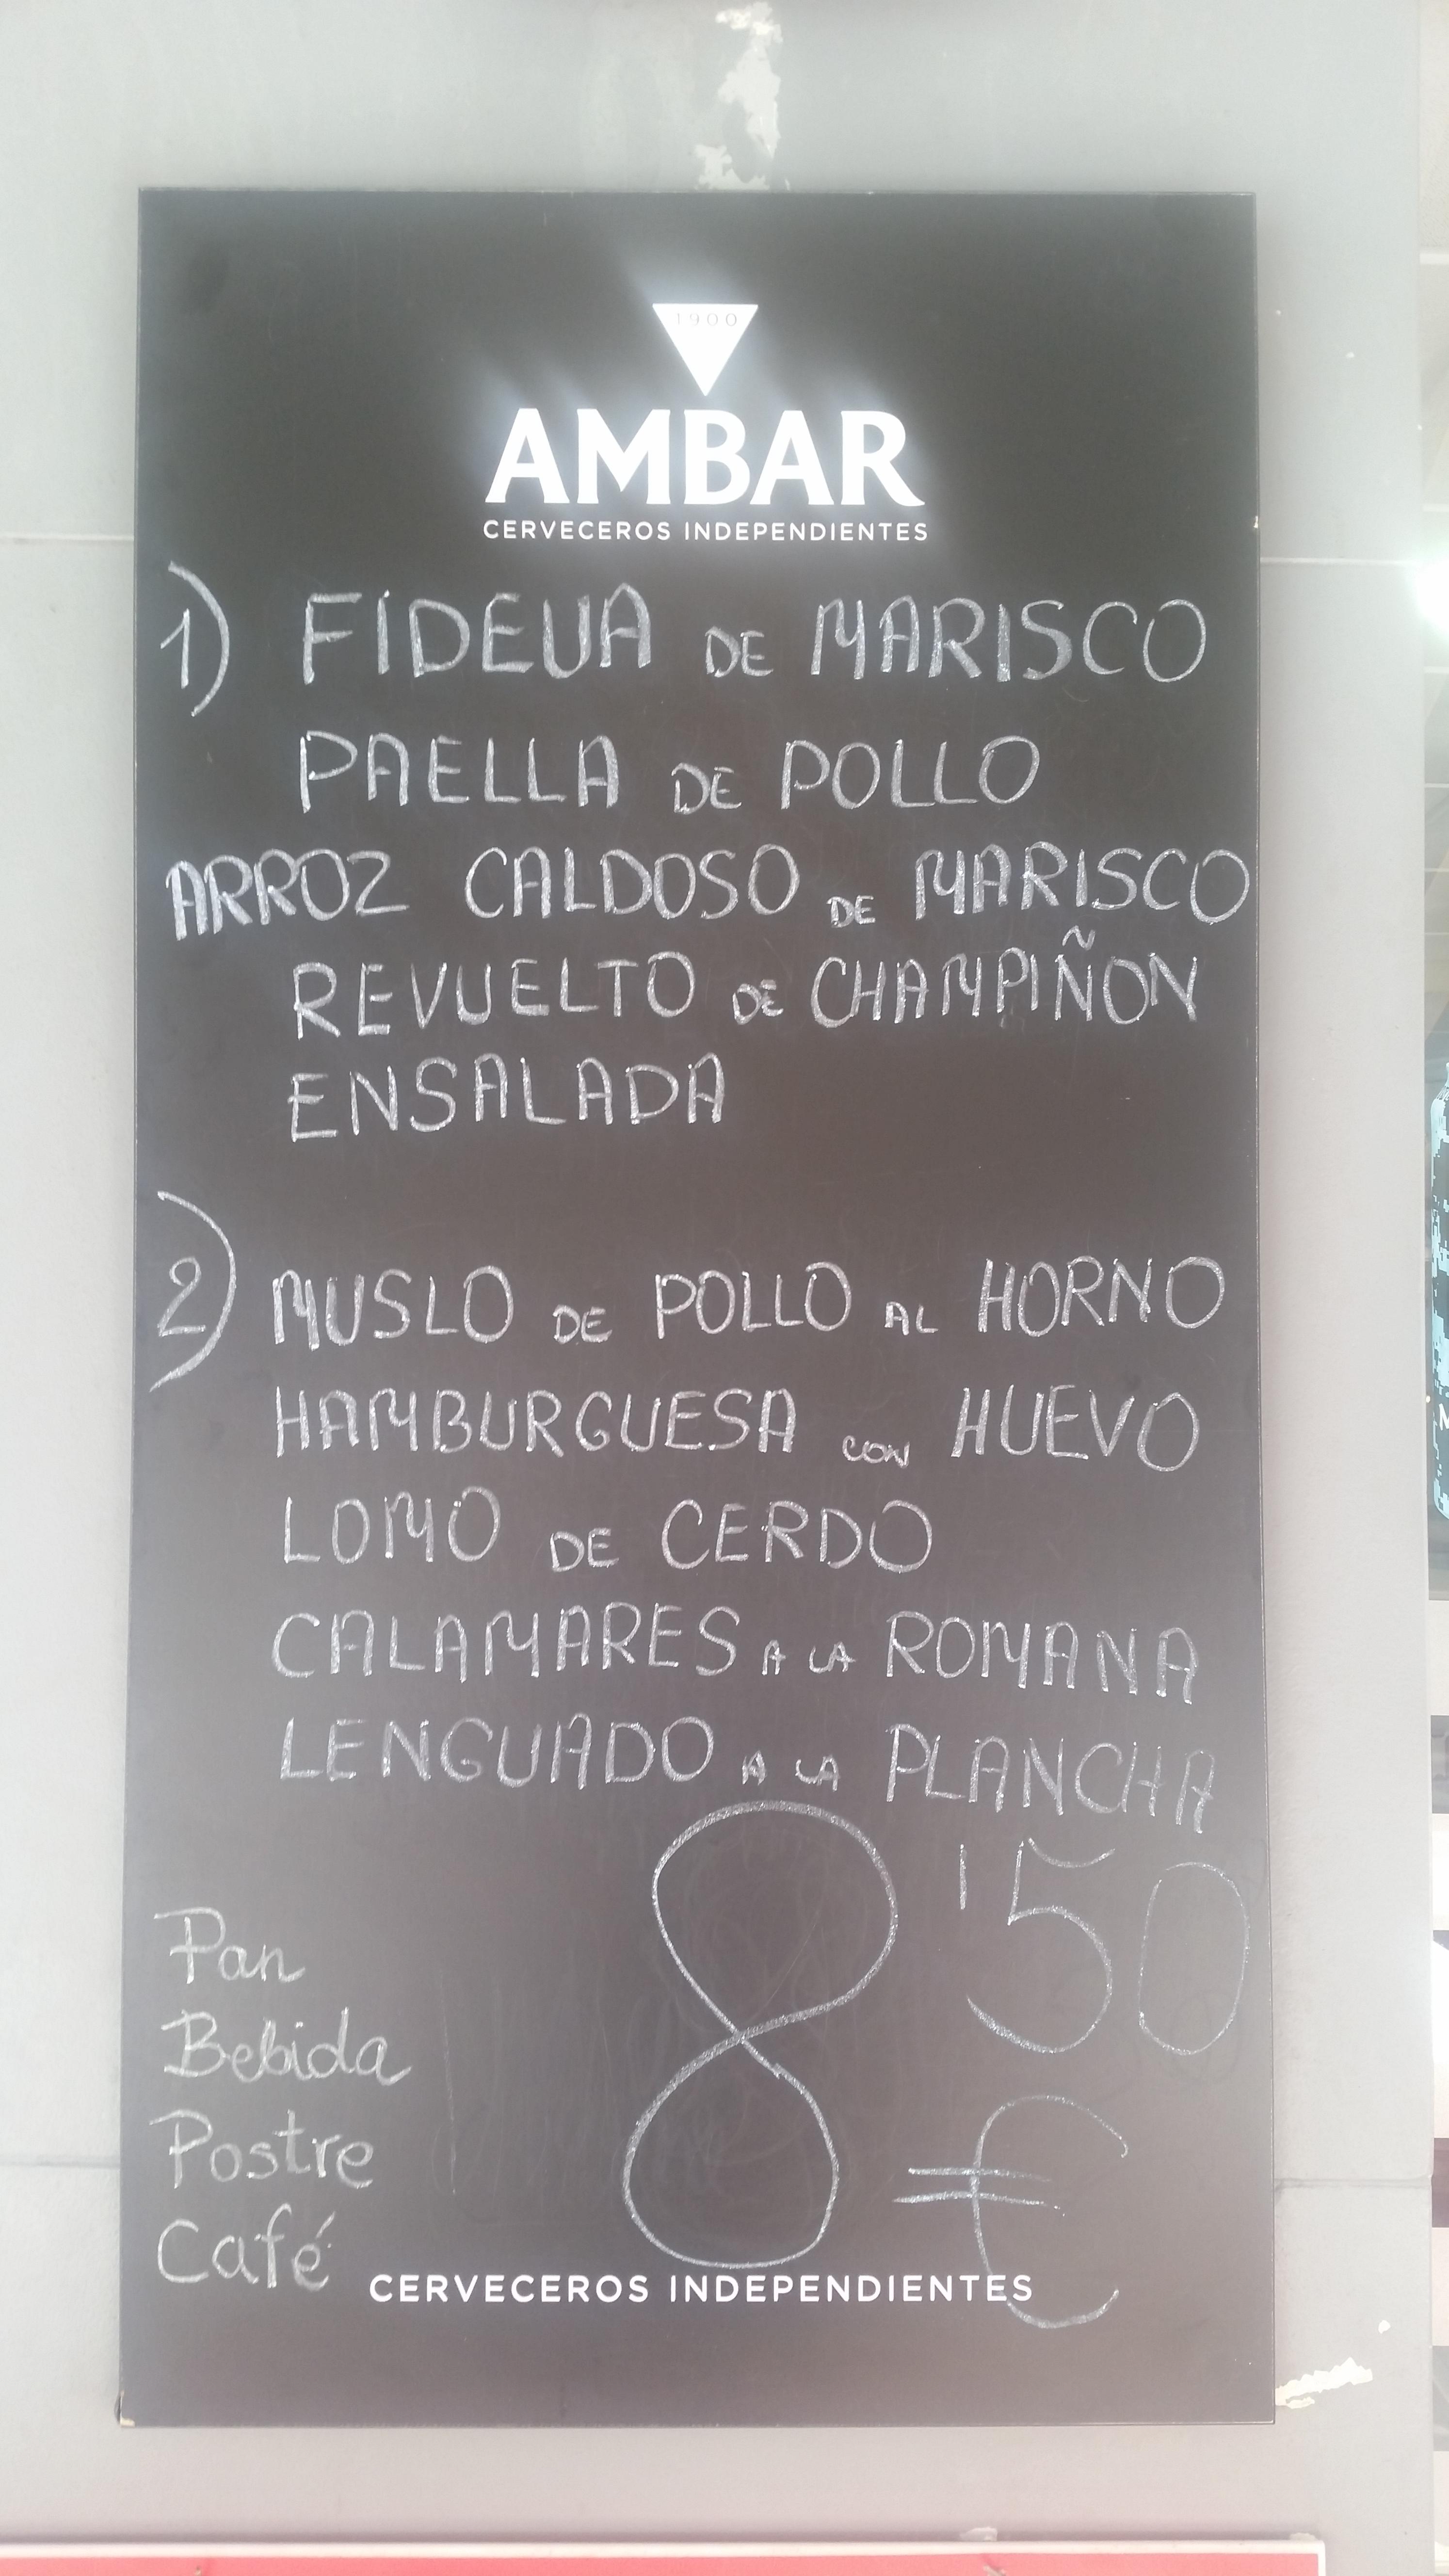 1900
AMBAR
CERVECEROS INDEPENDIENTES
1) FIDEUA DE MARISCO
PAELLA DE POLLO
ARROZ CALDOSO DE MARISCO
REVUELTO DE CHAMPIÑON
ENSALADA
2) MUSLO DE POLLO AL HORNO
HAMBURGUESA CON HUEVO
LOMO DE CERDO
CALAMARES A LA ROMANA
LENGUADO A LA PLANCHA
8'50 €
Pan
Bebida
Postre
Café
CERVECEROS INDEPENDIENTES